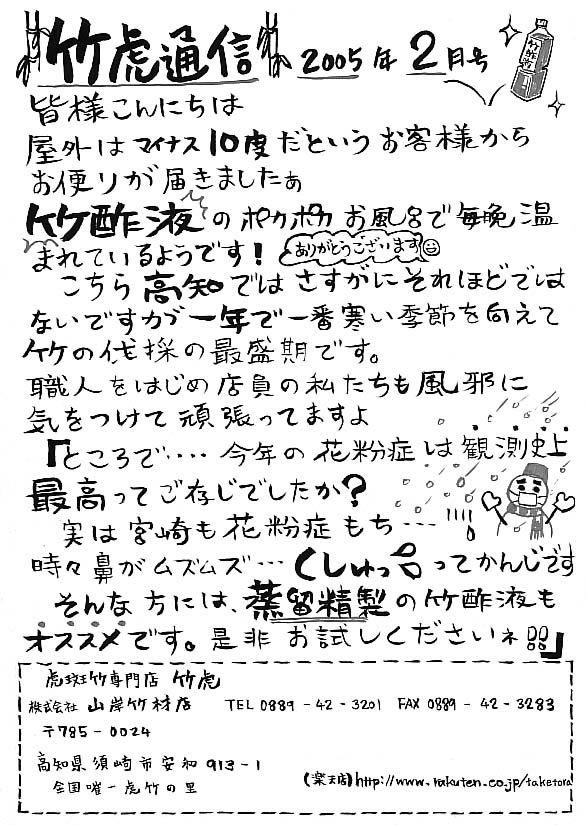 竹虎通信 2005年2月号
竹酢液
皆様こんにちは
屋外はマイナス10度だというお客様から
お便りが届きましたぁ
竹酢液のポカポカお風呂で毎晩温
まれているようです！ ありがとうございます
こちら高知ではさすがにそれほどでは
ないですが一年で一番寒い季節を向えて
竹の伐採の最盛期です。
職人をはじめ店員の私たちも風邪に
気をつけて頑張ってますよ
「ところで‥‥今年の花粉症は観測史上
最高ってご存じでしたか？
実は宮崎も花粉症もち‥‥!!!!
時々鼻がムズムズ…くしゅっ！ってかんじです
そんな方には、蒸留精製の竹酢液も
オススメです。是非お試しくださいネ!!」
虎斑竹専門店 竹虎
株式会社 山岸竹材店 TEL 0889-42-3201 FAX 0889-42-3283
〒785-0024
高知県須崎市安和913-1
全国唯一虎竹の里
(楽天店)http://www.rakuten.co.jp/taketora